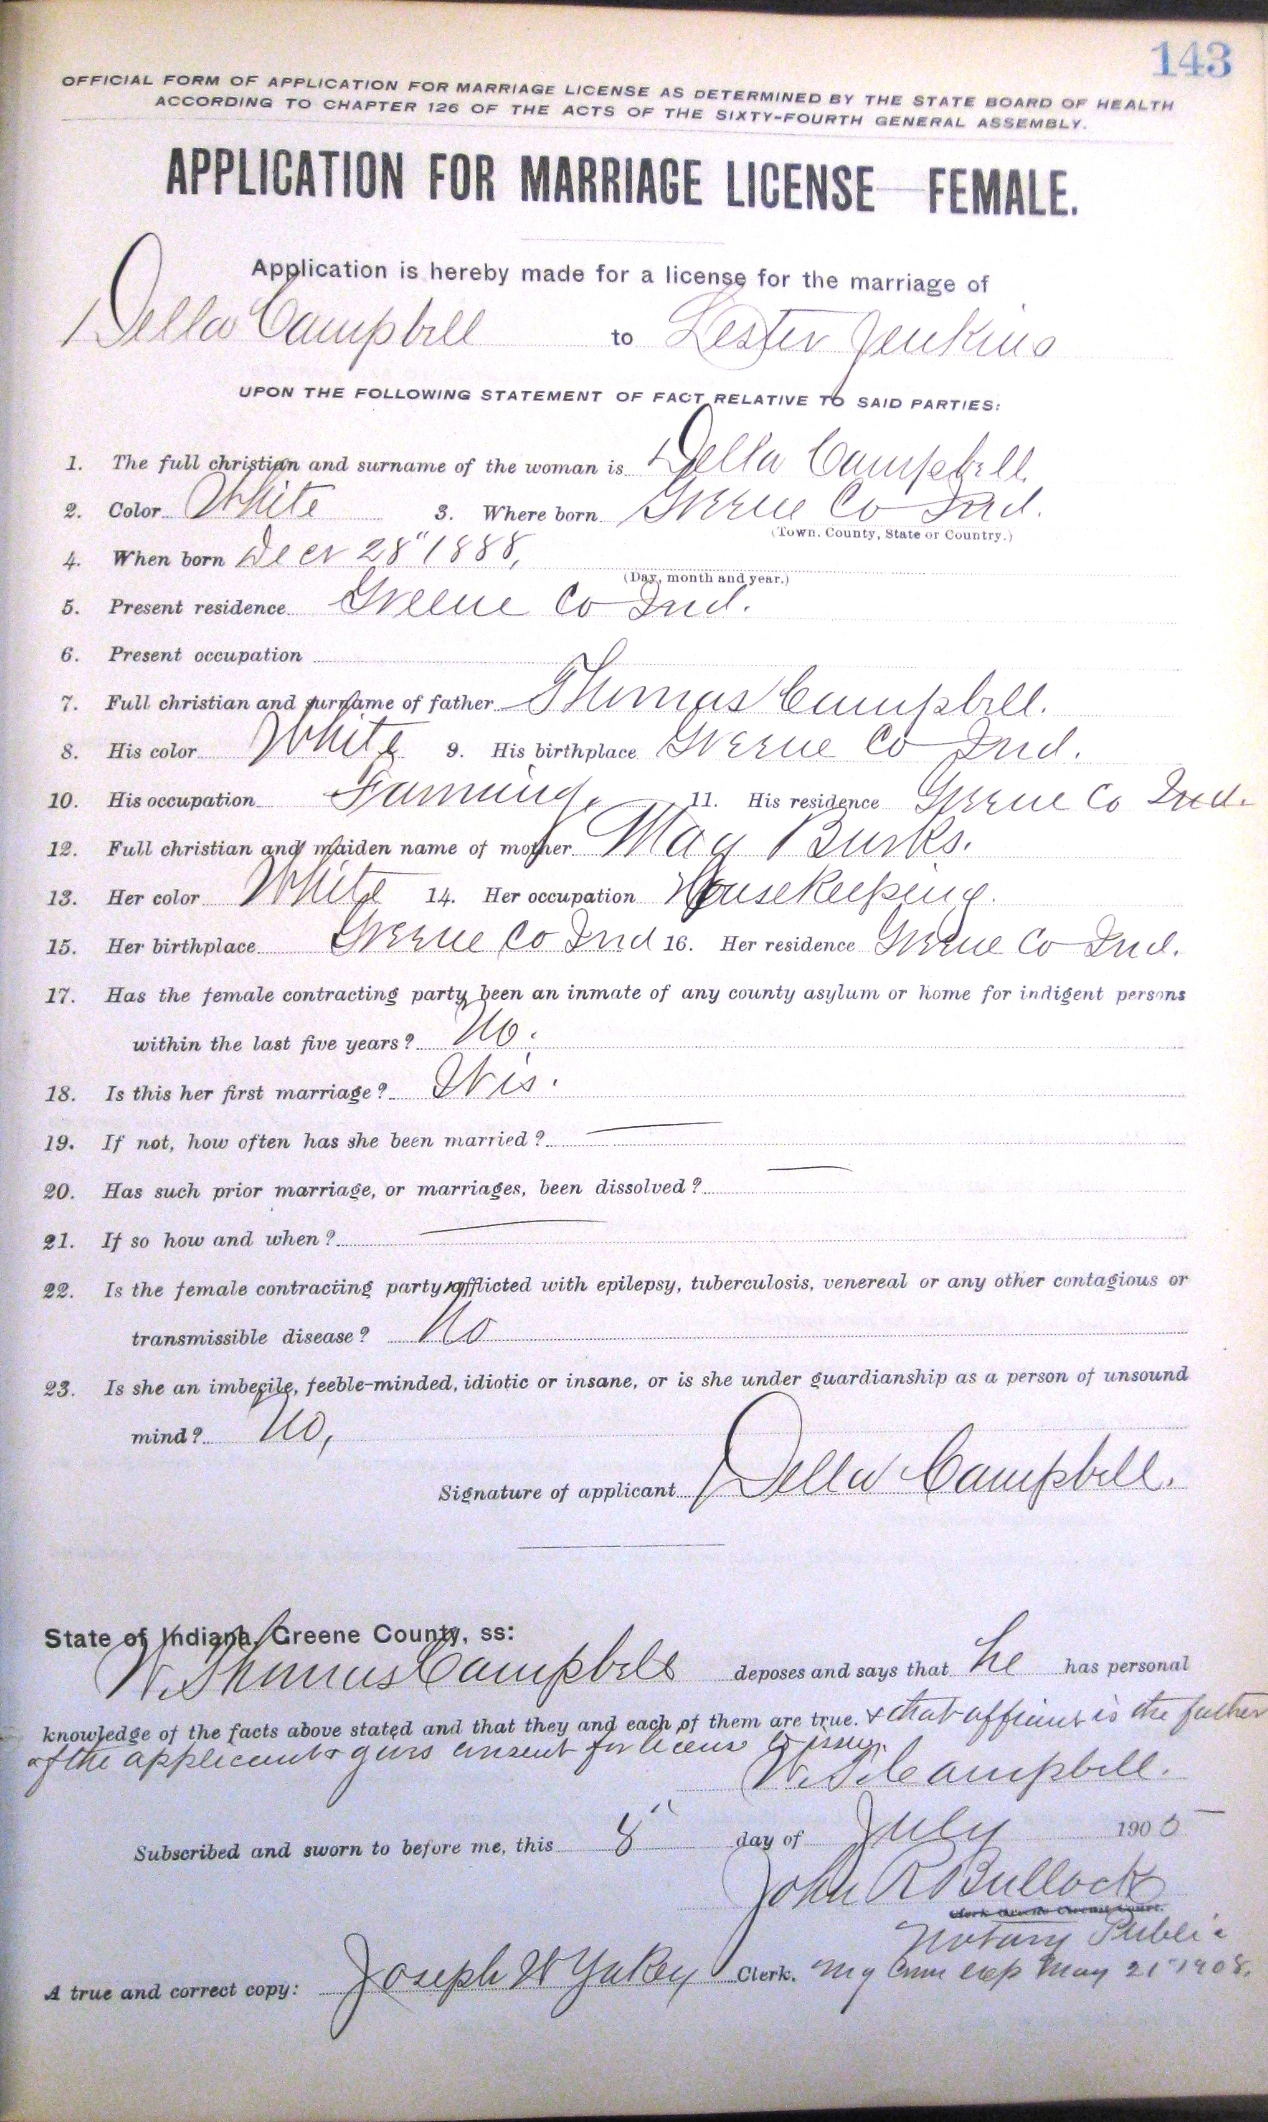 143
OFFICIAL FORM OF APPLICATION FOR MARRIAGE LICENSE AS DETERMINED BY THE STATE BOARD OF HEALTH
ACCORDING TO CHAPTER 126 OF THE ACTS OF THE SIXTY-FOURTH GENERAL ASSEMBLY.
APPLICATION FOR MARRIAGE LICENSE—FEMALE.
Application is hereby made for a license for the marriage of
Della Campbell to Lester Jenkins
UPON THE FOLLOWING STATEMENT OF FACT RELATIVE TO SAID PARTIES:
1. The full christian and surname of the woman is Della Campbell.
2. Color White 3. Where born Greene Co Ind.
(Town. County, State or Country.)
4. When born Decr 28" 1888,
(Day, month and year.)
5. Present residence Greene Co Ind.
6. Present occupation
7. Full christian and surname of father Thomas Campbell.
8. His color White 9. His birthplace Greene Co Ind.
10. His occupation Farming. 11. His residence Greene Co Ind.
12. Full christian and maiden name of mother May Burks.
13. Her color White 14. Her occupation Housekeeping.
15. Her birthplace Greene Co Ind 16. Her residence Greene Co Ind.
17. Has the female contracting party been an inmate of any county asylum or home for indigent persons
within the last five years? No.
18. Is this her first marriage? Yes.
19. If not, how often has she been married? —
20. Has such prior marriage, or marriages, been dissolved? —
21. If so how and when? —
22. Is the female contracting party afflicted with epilepsy, tuberculosis, venereal or any other contagious or
transmissible disease? No
23. Is she an imbecile, feeble-minded, idiotic or insane, or is she under guardianship as a person of unsound
mind? No,
Signature of applicant Della Campbell.
State of Indiana, Greene County, ss:
W. Thomas Campbell deposes and says that he has personal
knowledge of the facts above stated and that they and each of them are true. & that affiant is the father
of the applicant & gives consent for license to issue.
W. T. Campbell.
Subscribed and sworn to before me, this 8" day of July 1905
John R Bullock
Clerk Greene Circuit Court.
Notary Public
A true and correct copy: Joseph W Yakey Clerk. My Com exp May 21" 1908.